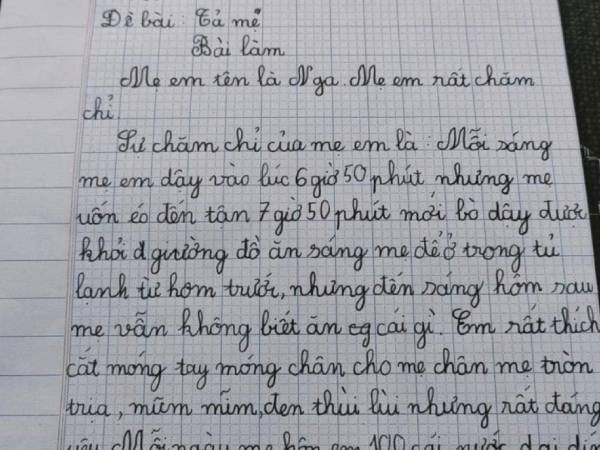 Đề bài: Tả mẹ
Bài làm
Mẹ em tên là Nga. Mẹ em rất chăm
chỉ.
Sự chăm chỉ của mẹ em là: Mỗi sáng
mẹ em dậy vào lúc 6 giờ 50 phút nhưng mẹ
uốn éo đến tận 7 giờ 50 phút mới bò dậy được
khỏi d giường đồ ăn sáng mẹ để ở trong tủ
lạnh từ hôm trước, nhưng đến sáng hôm sau
mẹ vẫn không biết ăn cg cái gì. Em rất thích
cắt móng tay móng chân cho mẹ chân mẹ tròn
trịa, mũm mĩm, đen thùi lùi nhưng rất đáng
yêu. Mỗi ngày mẹ hôn em 100 cái nước dãi